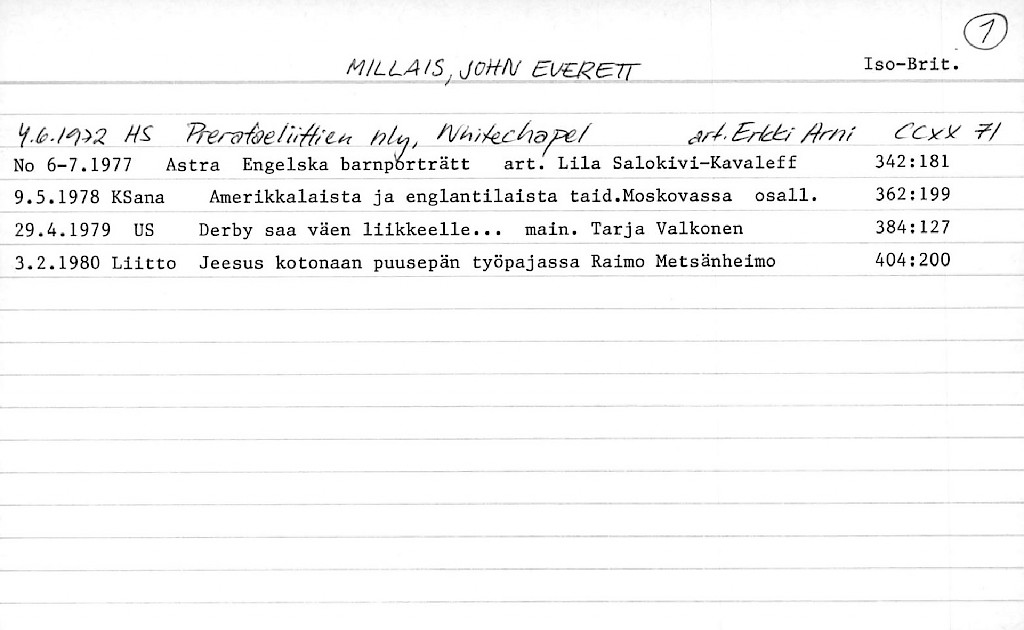 1
MILLAIS, JOHN EVERETT Iso-Brit.
4.6.1972 HS Prerafaeliittien nly, Whitechapel art. Erkki Arni CCXX 71
No 6-7.1977 Astra Engelska barnporträtt art. Lila Salokivi-Kavaleff 342:181
9.5.1978 KSana Amerikkalaista ja englantilaista taid.Moskovassa osall. 362:199
29.4.1979 US Derby saa väen liikkeelle... main. Tarja Valkonen 384:127
3.2.1980 Liitto Jeesus kotonaan puusepän työpajassa Raimo Metsänheimo 404:200